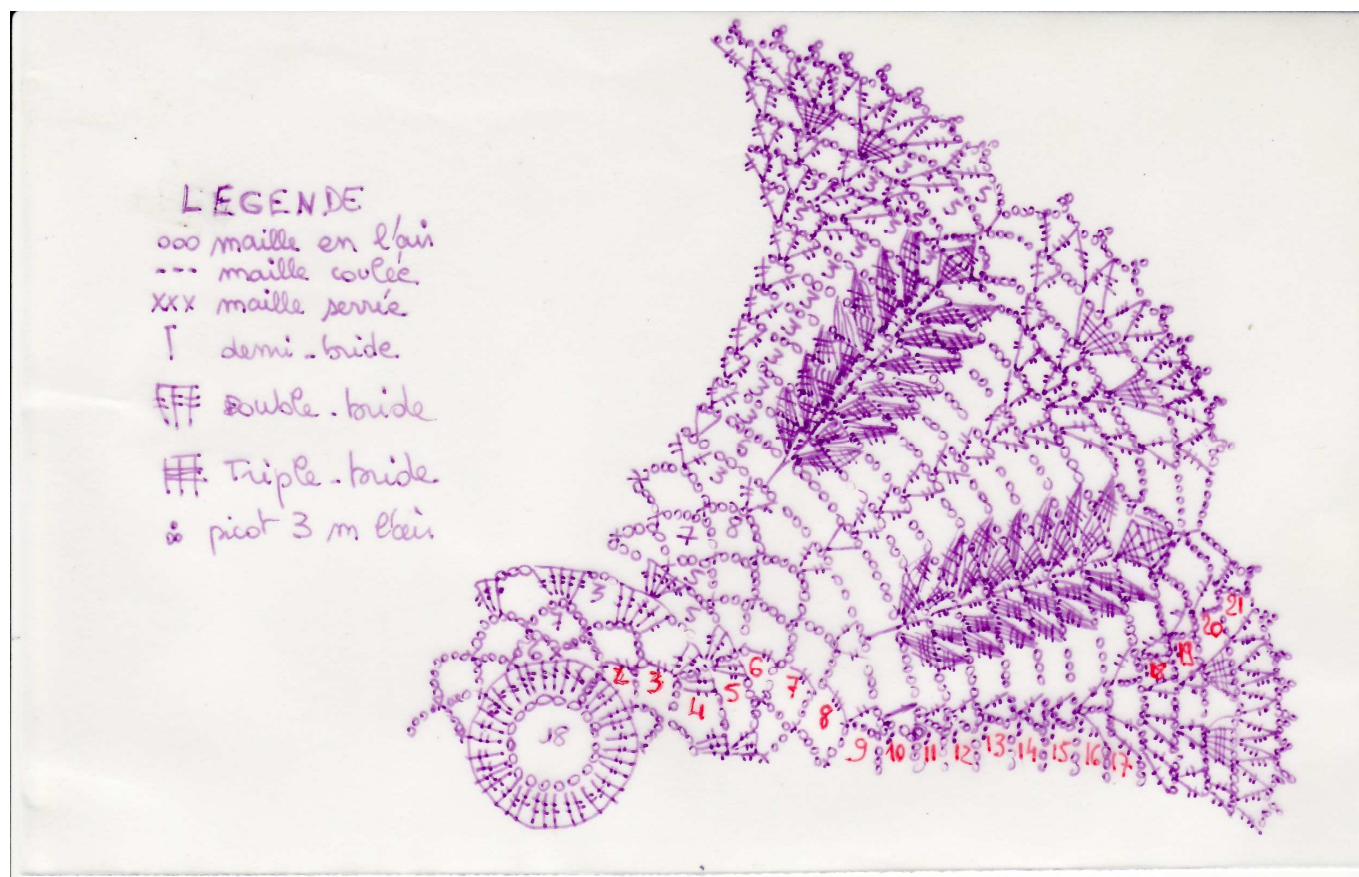 LEGENDE
ooo maille en l'air
--- maille coulée
xxx maille serrée
demi-bride
Double-bride
Triple-bride
picot 3 m l'air
3
3
3
7 8
3
1
2 3 4 5 6 7 8
18
9 10 11 12 13 14 15 16 17
18 19 20 21